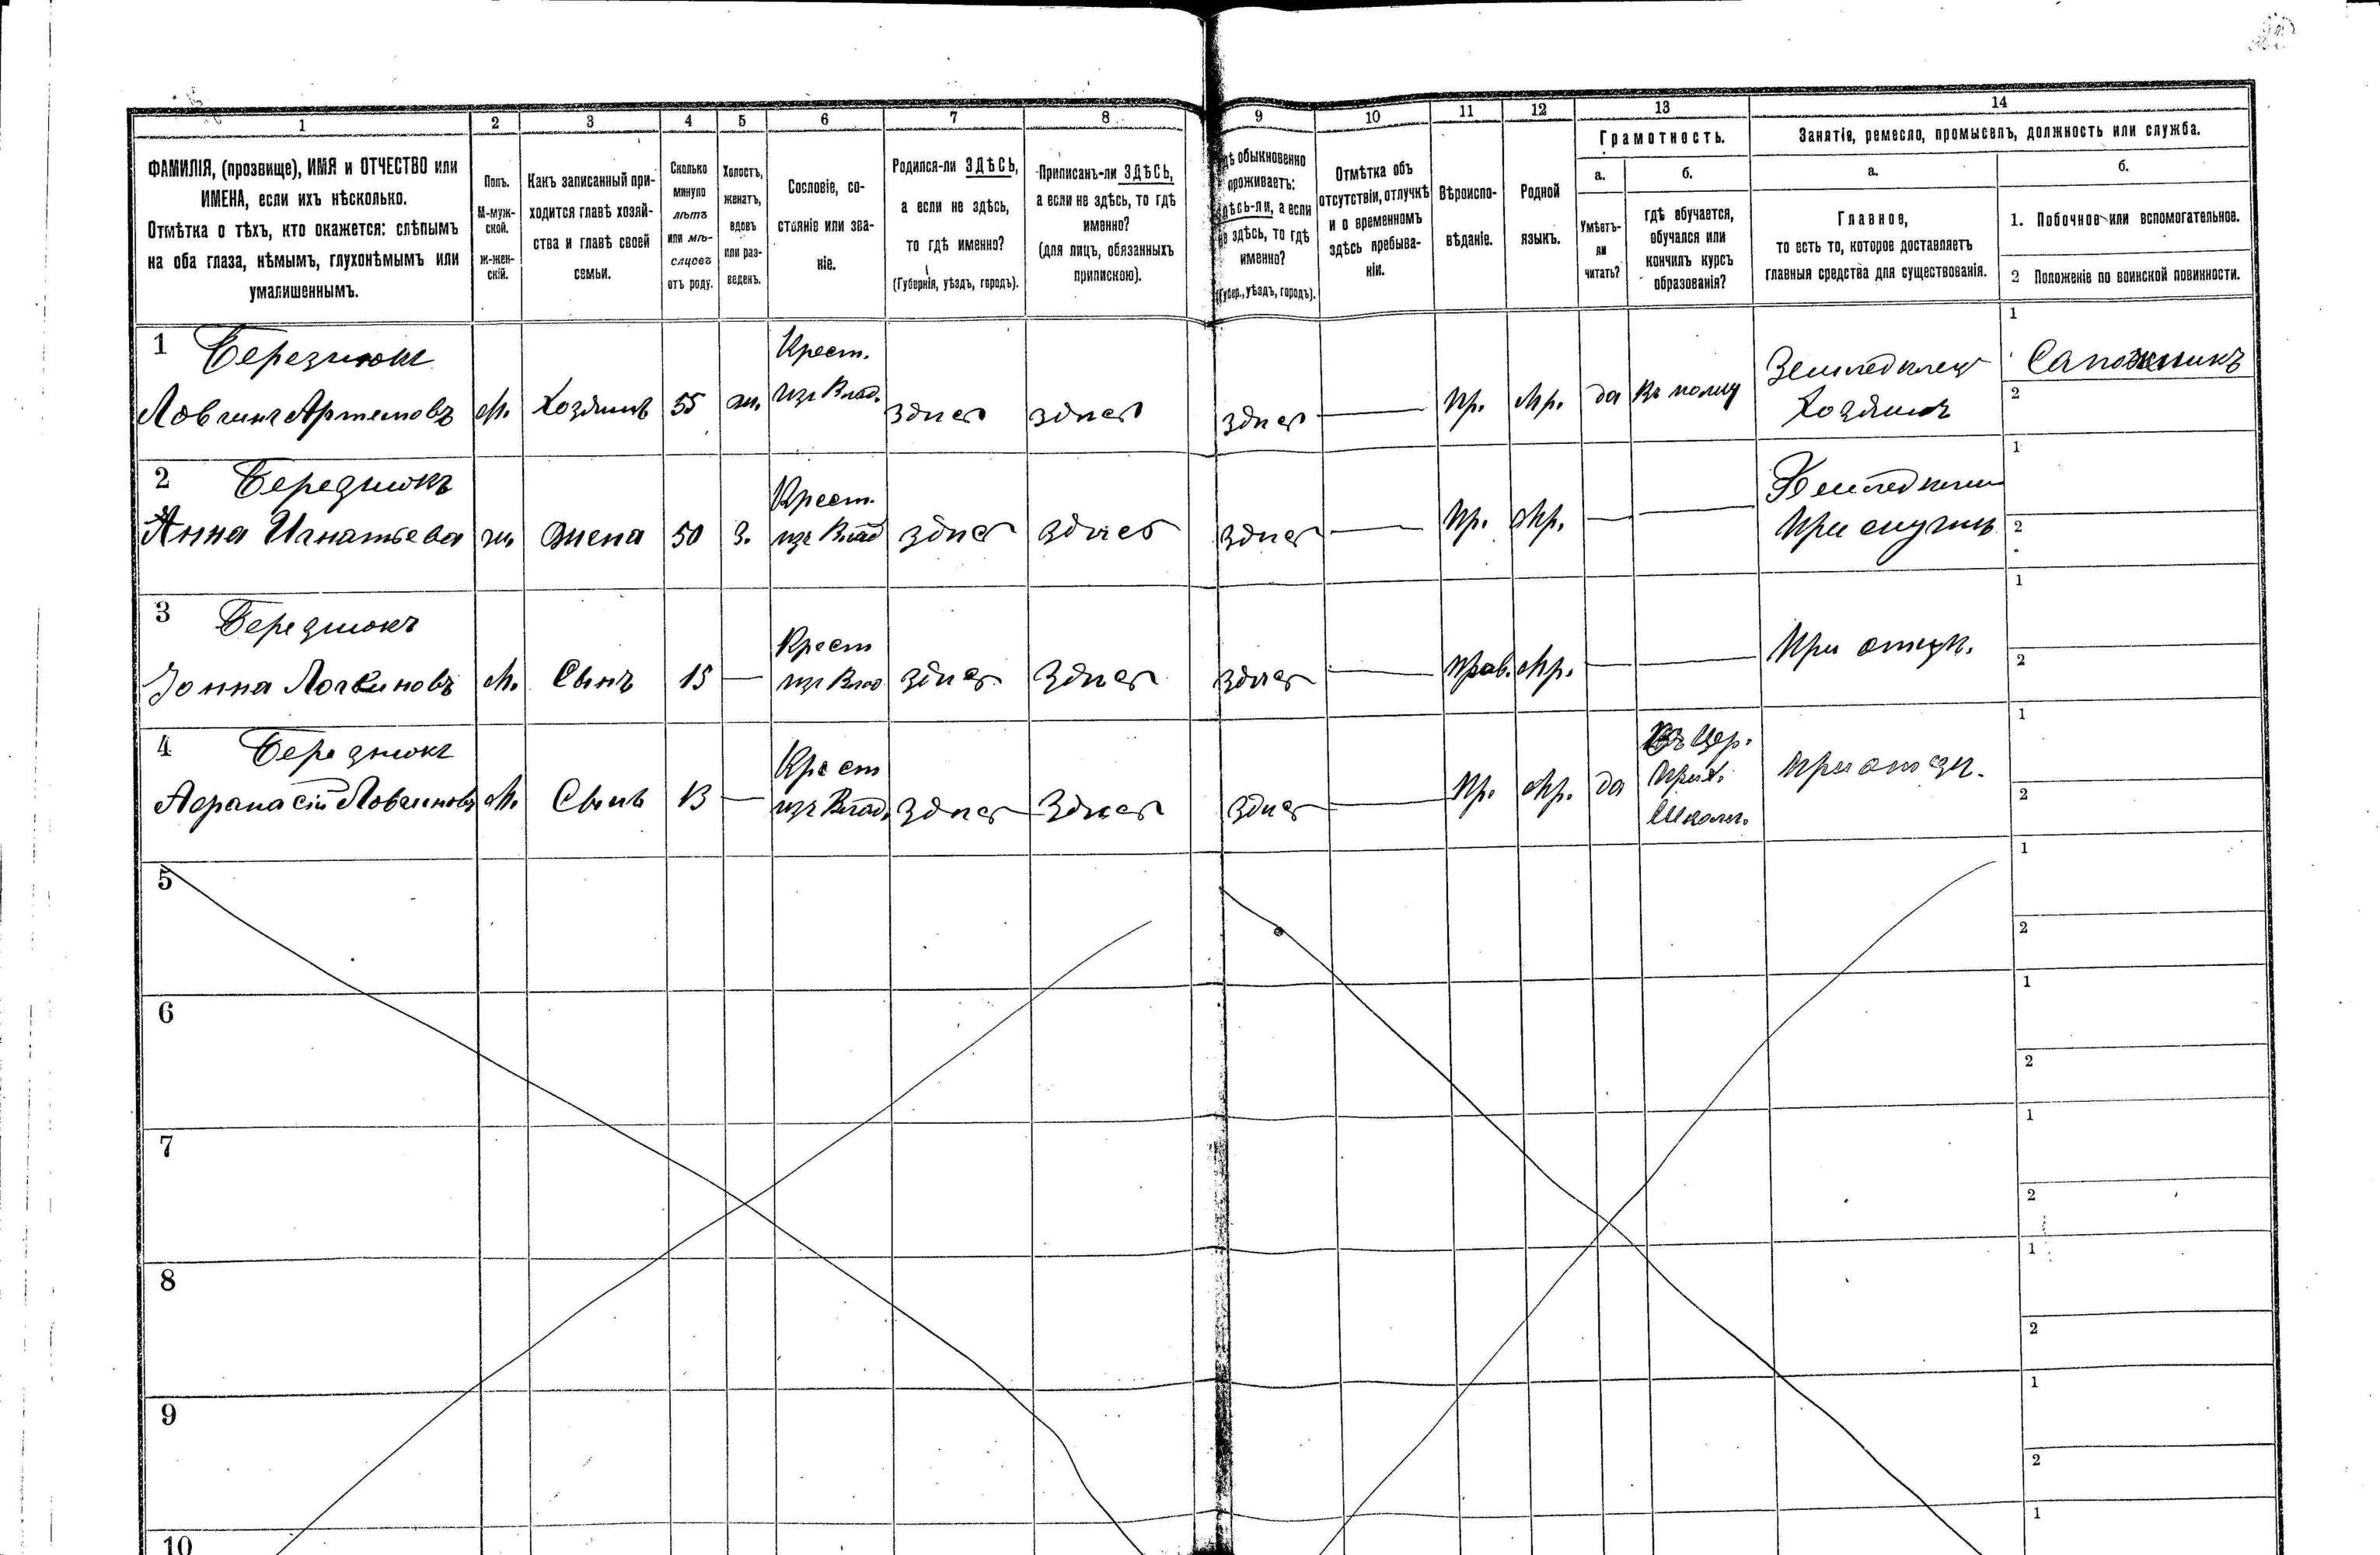 1 2 3 4 5 6 7 8 9 10 11 12 13 14
ФАМИЛІЯ, (прозвище), ИМЯ и ОТЧЕСТВО или
ИМЕНА, если ихъ нѣсколько.
Отмѣтка о тѣхъ, кто окажется: слѣпымъ
на оба глаза, нѣмымъ, глухонѣмымъ или
умалишеннымъ.
Полъ.
М-муж-
ской.
Ж-жен-
скій.
Какъ записанный при-
ходится главѣ хозяй-
ства и главѣ своей
семьи.
Сколько
минуло
лѣтъ
или мѣ-
сяцевъ
отъ роду.
Холостъ,
женатъ,
вдовъ
или раз-
веденъ.
Сословіе, со-
стояніе или зва-
ніе.
Родился-ли ЗДѢСЬ,
а если не здѣсь,
то гдѣ именно?
(Губернія, уѣздъ, городъ).
Приписанъ-ли ЗДѢСЬ,
а если не здѣсь, то гдѣ
именно?
(для лицъ, обязанныхъ
припискою).
гдѣ обыкновенно
проживаетъ:
здѣсь-ли, а если
не здѣсь, то гдѣ
именно?
(Губер., уѣздъ, городъ).
Отмѣтка объ
отсутствіи, отлучкѣ
и о временномъ
здѣсь пребыва-
ніи.
Вѣроиспо-
вѣданіе.
Родной
языкъ.
Грамотность.
а.
Умѣетъ-
ли
читать?
б.
гдѣ обучается,
обучался или
кончилъ курсъ
образованія?
Занятіе, ремесло, промыселъ, должность или служба.
а.
Главное,
то есть то, которое доставляетъ
главныя средства для существованія.
б.
1. Побочное или вспомогательное.
2 Положеніе по воинской повинности.
1 Березнюкъ
Крест.
Артемовъ м. Хозяинъ 55 ж. изъ Влад. здѣсь здѣсь здѣсь — Пр. Мр. да
Хозяинъ
1 Сапожникъ
2
2 Березнюкъ
Крест.
Анна Игнатьева ж. Жена 50 З. изъ Влад здѣсь здѣсь здѣсь — Пр. Мр. — —
При
1
2
3 Березнюкъ
Крест
Іонна Логвиновъ М. Сынъ 15 — изъ Влад здѣсь здѣсь здѣсь — Прав. Мр. — —
При отцѣ.
1
2
4 Березнюкъ
Крест
Афанасій Ловгиновъ М. Сынъ 13 — изъ Влад. здѣсь здѣсь здѣсь — Пр. Мр. да
Въ Цер.
Прих.
Школѣ.
При отцѣ.
1
2
5
1
2
6
1
2
7
1
2
8
1
2
9
1
2
10
1